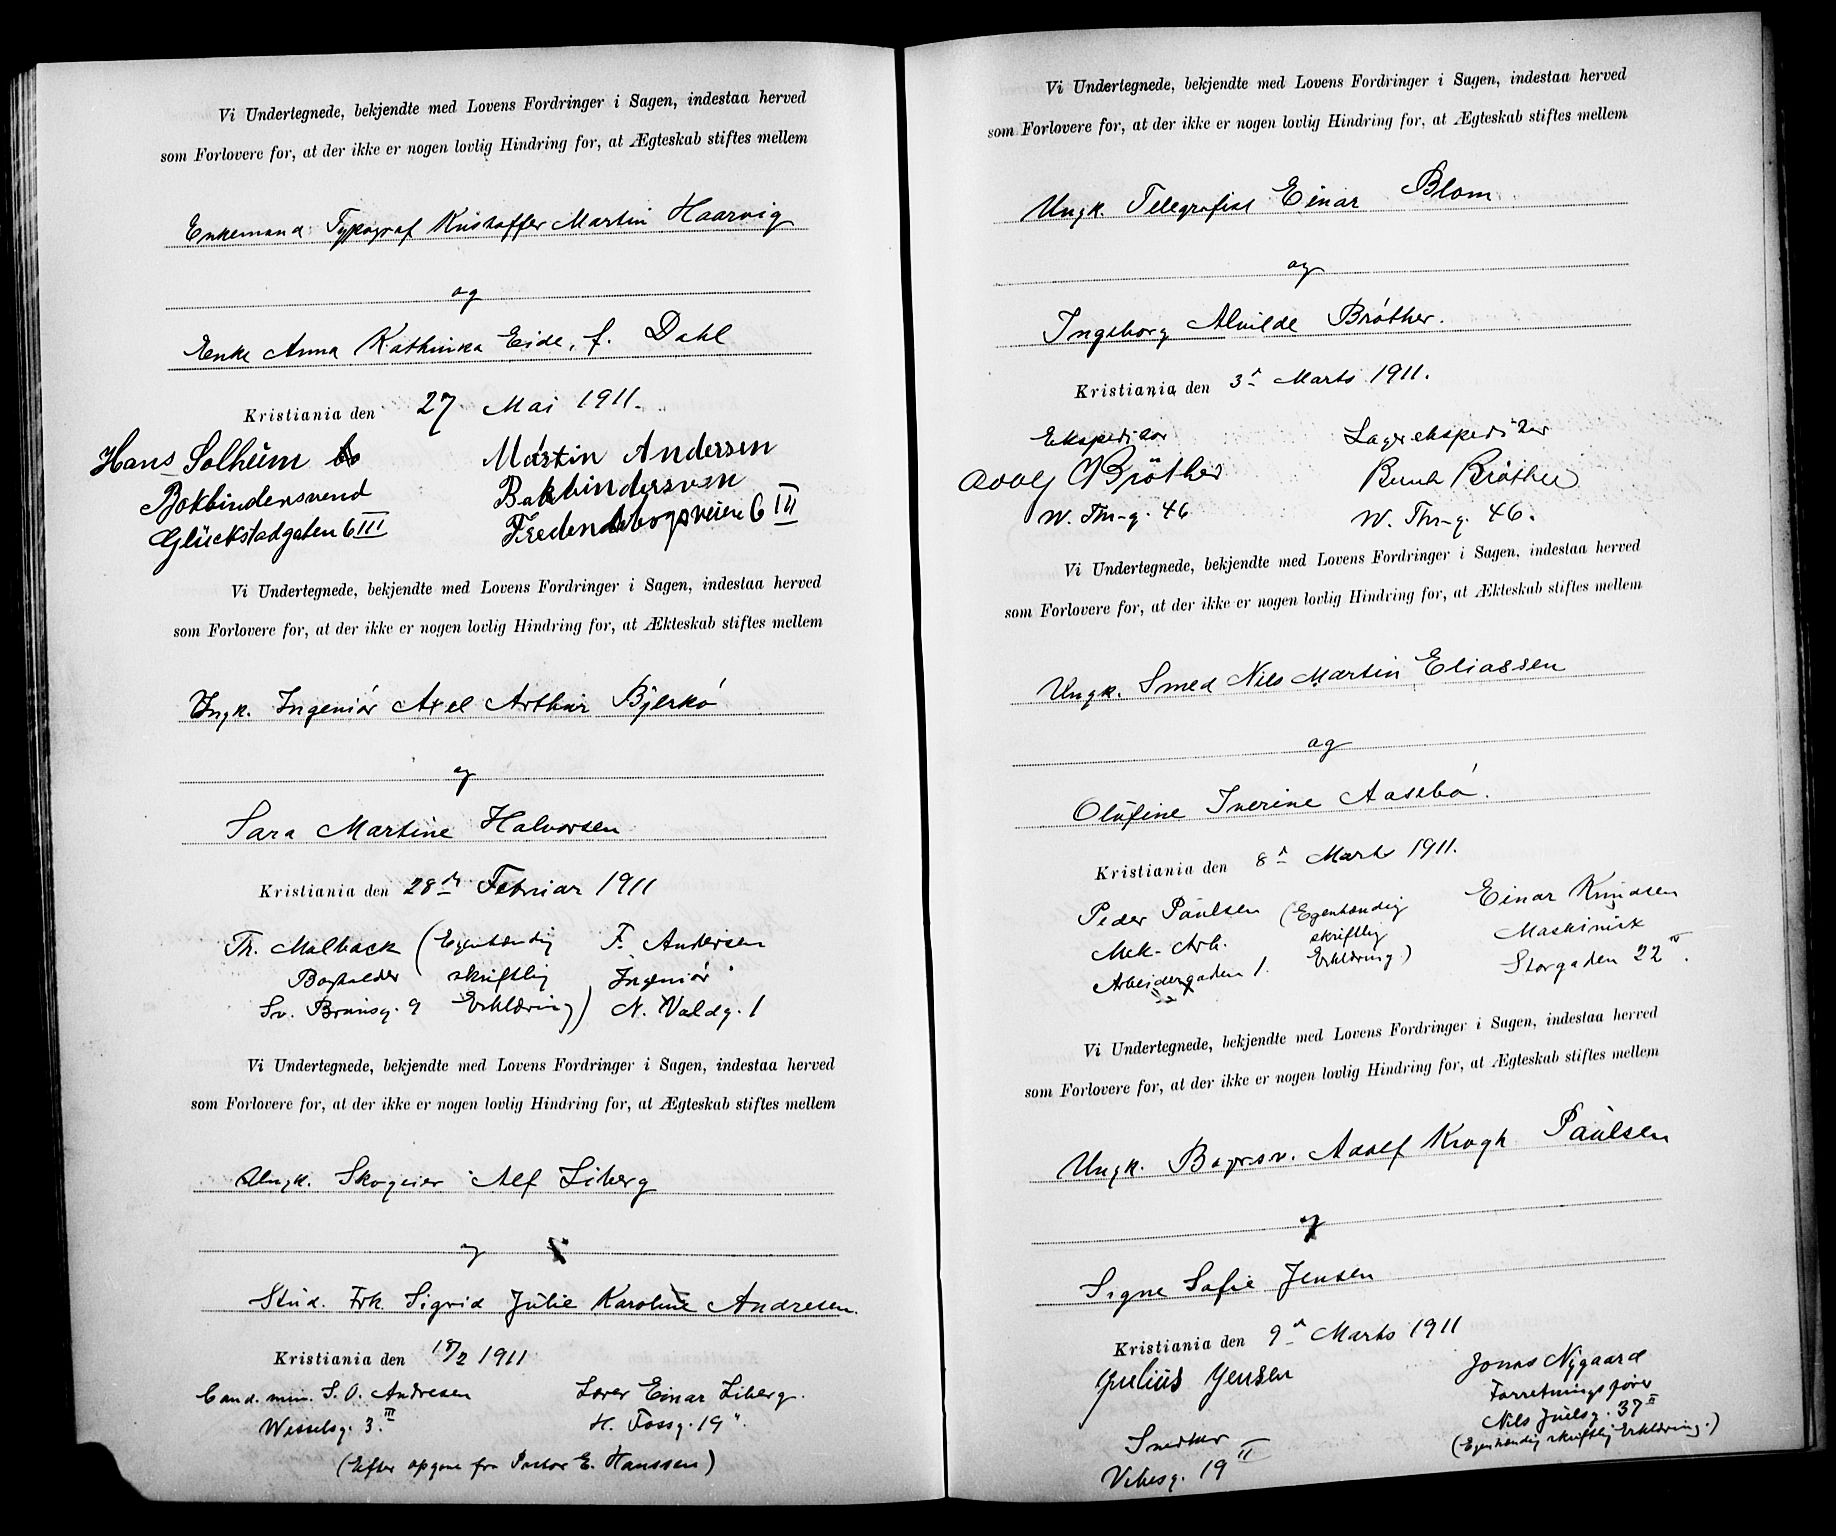 Vi Undertegnede, bekjendte med Lovens Fordringer i Sagen, indestaa herved
som Forlovere for, at der ikke er nogen lovlig Hindring for, at Ægteskab stiftes mellem
Enkemand Typograf Kristoffer Martin Haarvig
og
Enke Anna Kathinka Eide, f. Dahl
Kristiania den 27 Mai 1911.
Hans Solheim Martin Andersen
Bokbindersvend Bokbindersven
Glückstadgaten 6 III Fredensborgsveien 6 III
Vi Undertegnede, bekjendte med Lovens Fordringer i Sagen, indestaa herved
som Forlovere for, at der ikke er nogen lovlig Hindring for, at Ækteskab stiftes mellem
Ungk. Ingeniør Axel Arthur Bjerkø
og
Sara Martine Halvorsen
Kristiania den 28de Februar 1911
Th. Malback (Egenhændig F. Andersen
Bogholder skriftlig Ingeniør
Sv. Brunsg. 9 Erklæring) N. Valdg. 1
Vi Undertegnede, bekjendte med Lovens Fordringer i Sagen, indestaa herved
som Forlovere for, at der ikke er nogen lovlig Hindring for, at Ægteskab stiftes mellem
Ungk. Skogeier Alf Liberg
og
Stud. Frk Sigrid Julie Karoline Andresen.
Kristiania den 18/2 1911
Cand. min. S. O. Andresen Lærer Einar Liberg.
Wesselsg. 3 III H. Fossg. 19
(Efter opgave fra Pastor E. Hanssen)
Vi Undertegnede, bekjendte med Lovens Fordringer i Sagen, indestaa herved
som Forlovere for, at der ikke er nogen lovlig Hindring for, at Ægteskab stiftes mellem
Ungk. Telegrafist Einar Blom
og
Ingeborg Alvilde Brøther.
Kristiania den 3de Marts 1911.
Ekspeditør Lagerekspeditør
Adolf Bröther Bernh Bröther
W. Thr-g. 46 W. Thr-g. 46.
Vi Undertegnede, bekjendte med Lovens Fordringer i Sagen, indestaa herved
som Forlovere for, at der ikke er nogen lovlig Hindring for, at Ækteskab stiftes mellem
Ungk. Smed Nils Martin Eliassen
og
Olufine Iverine Aasebø.
Kristiania den 8de Marts 1911.
Peder Paulsen (Egenhændig Einar Knudsen
Mek. Arb. skriftlig Maskinist
Arbeidergaden 1. Erklæring) Storgaden 22 IV.
Vi Undertegnede, bekjendte med Lovens Fordringer i Sagen, indestaa herved
som Forlovere for, at der ikke er nogen lovlig Hindring for, at Ægteskab stiftes mellem
Ungk. Bogrsv. Adolf Krogh Paulsen
og
Signe Sofie Jensen
Kristiania den 9de Marts 1911
Julius Jensen Jonas Nygaard
Snedker Forretningsfører
Vibesg. 19 II Nils Juelsg. 37 II
(Egenhændig skriftlig Erklæring.)